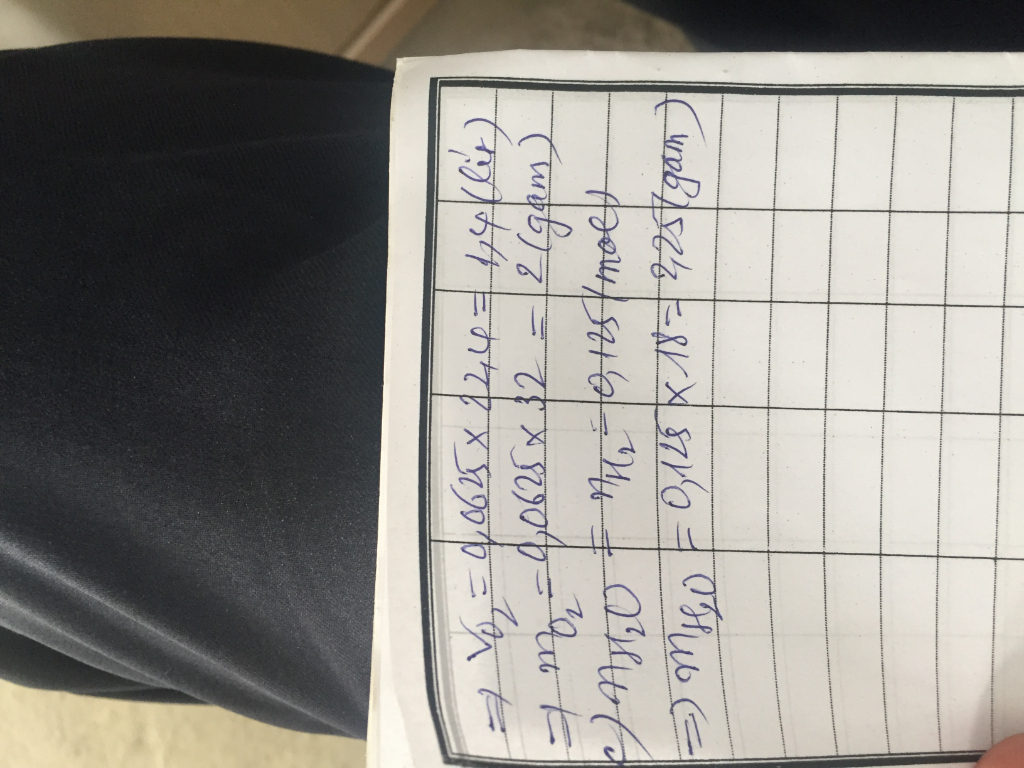 ⇒ VO₂ = 0,0625 × 22,4 = 1,4 (lít)
⇒ mO₂ = 0,0625 × 32 = 2 (gam)
c) nH₂O = nH₂ = 0,125 (mol)
⇒ mH₂O = 0,125 × 18 = 2,25 (gam)